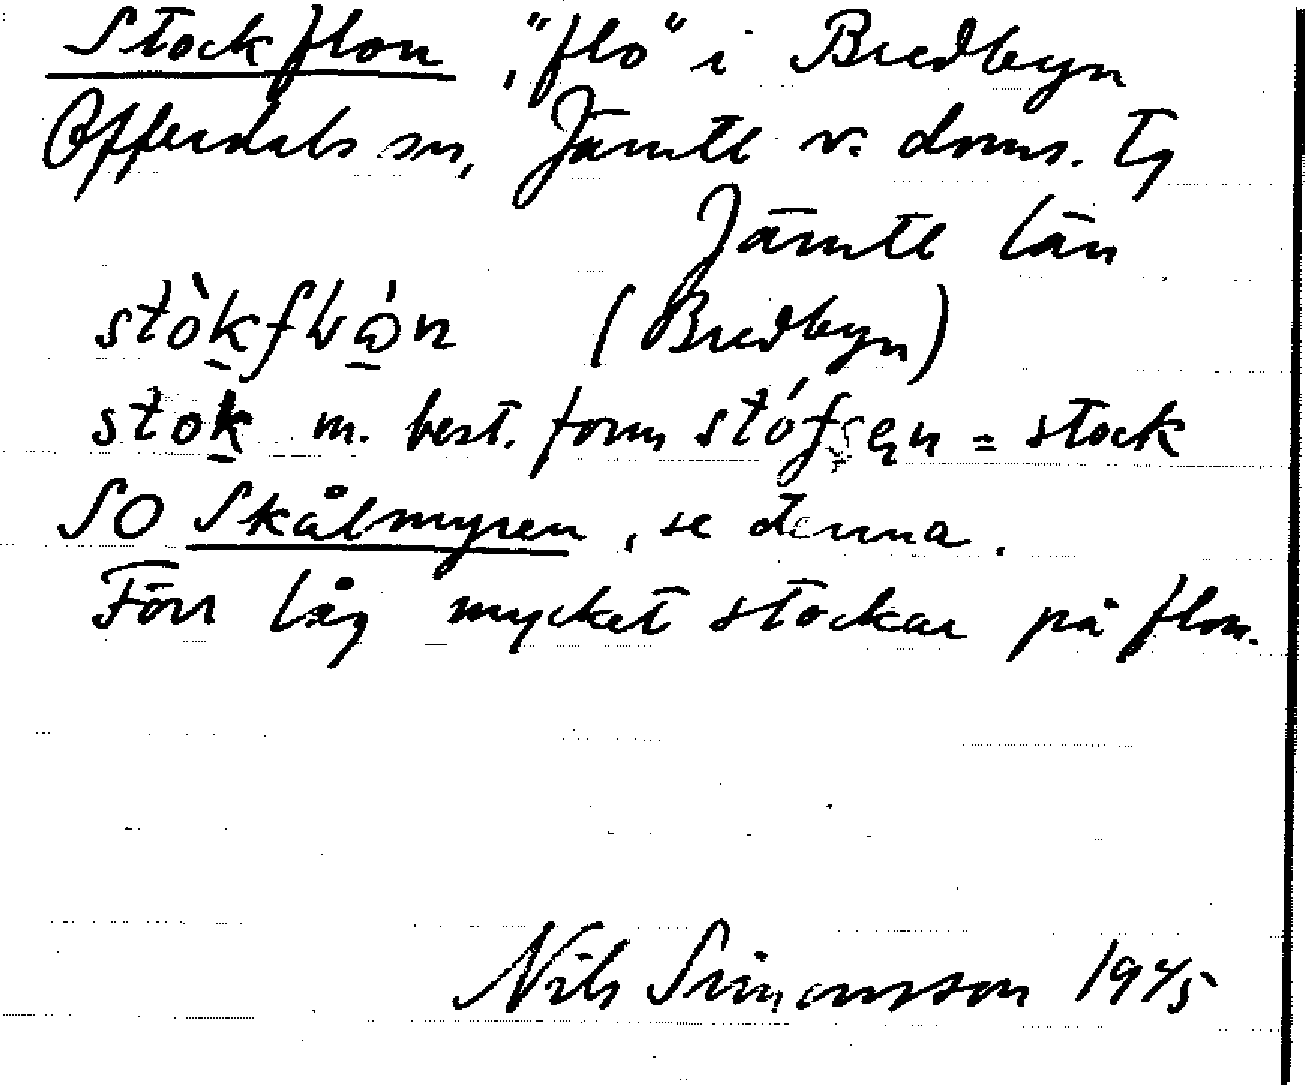 Stockflon, "flo" i Bredbyn
Offerdals sn, Jämtl v. doms. tg
Jämtl län
(Bredbyn)
stok m. best. form = stock
SO Skålmyren, se denna.
Förr låg mycket stockar på flon.
Nils Simonsson 1945